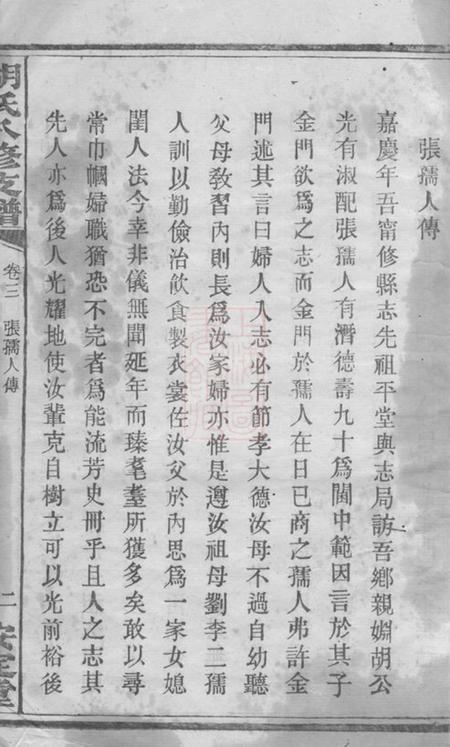 張孺人傳
嘉慶年吾甯修縣志先祖平堂與志局訪吾鄉親姻胡公
光有淑配張孺人有潛德壽九十爲閫中範因言於其子
金門欲爲之志而金門於孺人在日已商之孺人弗許金
門述其言曰婦人入志必有節孝大德汝母不過自幼聽
父母教習內則長爲汝家婦亦惟是遵汝祖母劉李二孺
人訓以勤儉治飲食製衣裳佐汝父於內思爲一家女媳
閨人法今幸非儀無聞延年而臻耄耋所獲多矣敢以尋
常巾幗婦職猶恐不完者爲能流芳史冊乎且人之志其
先人亦爲後人光耀地使汝輩克自樹立可以光前裕後
胡氏八修支譜
卷三
張孺人傳
二
安定堂